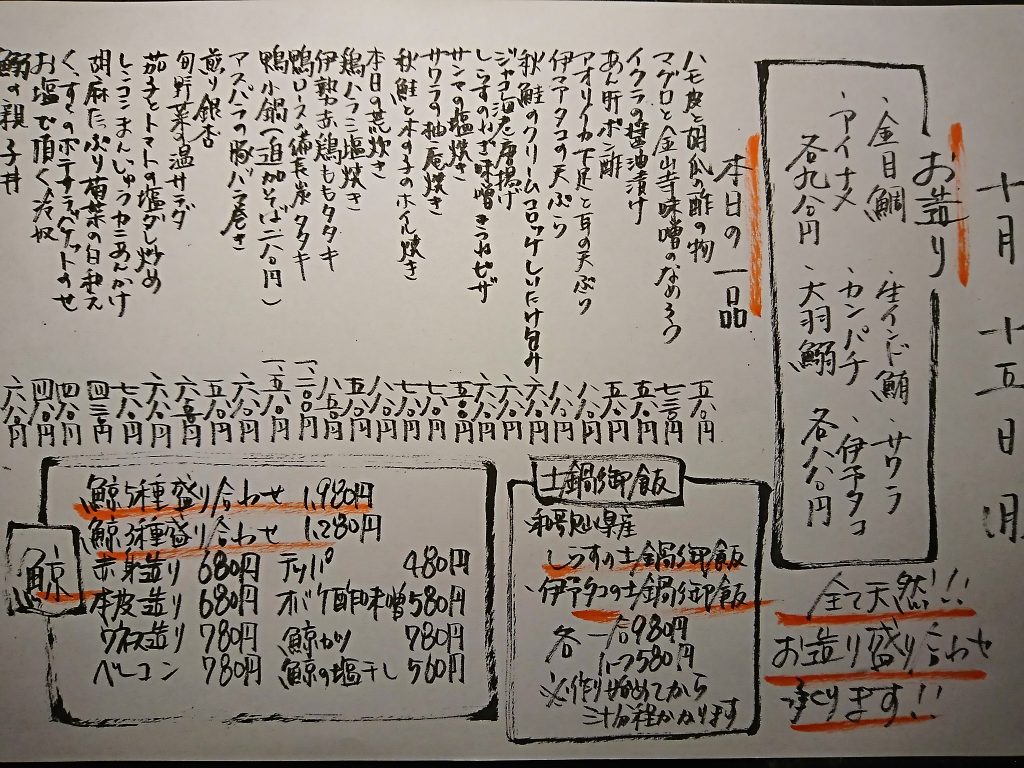 十月十五日(月)
お造り
・金目鯛 ・生インド鮪 ・サワラ
・アイナメ ・カンパチ ・伊予タコ
各九八〇円 ・大羽鰯 各八八〇円
全て天然!!
お造り盛り合わせ
承ります!!
本日の一品
ハモ皮と胡瓜の酢の物 五八〇円
マグロと金山寺味噌のなめろう 七三〇円
イクラの醤油漬け 五八〇円
あん肝ポン酢 五八〇円
アオリイカ下足と耳の天ぷら 八八〇円
伊マアタコの天ぷら 八八〇円
秋鮭のクリームコロッケしいたけ包み 六八〇円
ジャコ海老唐揚げ 六八〇円
しらすのねぎ味噌きつねピザ
サンマの塩焼き
サワラの柚庵焼き
秋鮭と木の子のホイル焼き 七八〇円
本日の荒炊き 八八〇円
鶏ハラミ塩焼き 五八〇円
伊勢赤鶏ももタタキ 八五〇円
鴨ロース備長炭タタキ 一、二〇〇円
鴨小鍋(追加そば二八〇円) 一、五八〇円
アスパラの豚バラ巻き 六八〇円
煎り銀杏 五八〇円
旬野菜温サラダ 六八〇円
茄子とトマトの塩ダレ炒め 六八〇円
レンコンまんじゅうカニあんかけ 七八〇円
胡麻たっぷり菊菜の白和え 四三〇円
くんすくのポテサラバゲットのせ 四八〇円
お塩で頂く冷奴 四八〇円
鰯の親子丼 六八〇円
土鍋御飯
和歌山県産
しらすの土鍋御飯
伊予タコの土鍋御飯
各 一合980円
ハーフ580円
※作り始めてから
三十分程かかります
鯨
鯨5種盛り合わせ 1,980円
鯨3種盛り合わせ 1,280円
赤身造り 680円 テッパ 480円
本皮造り 680円 オバケ酢味噌 580円
ウネス造り 780円 鯨カツ 780円
ベーコン 780円 鯨の塩干し 560円